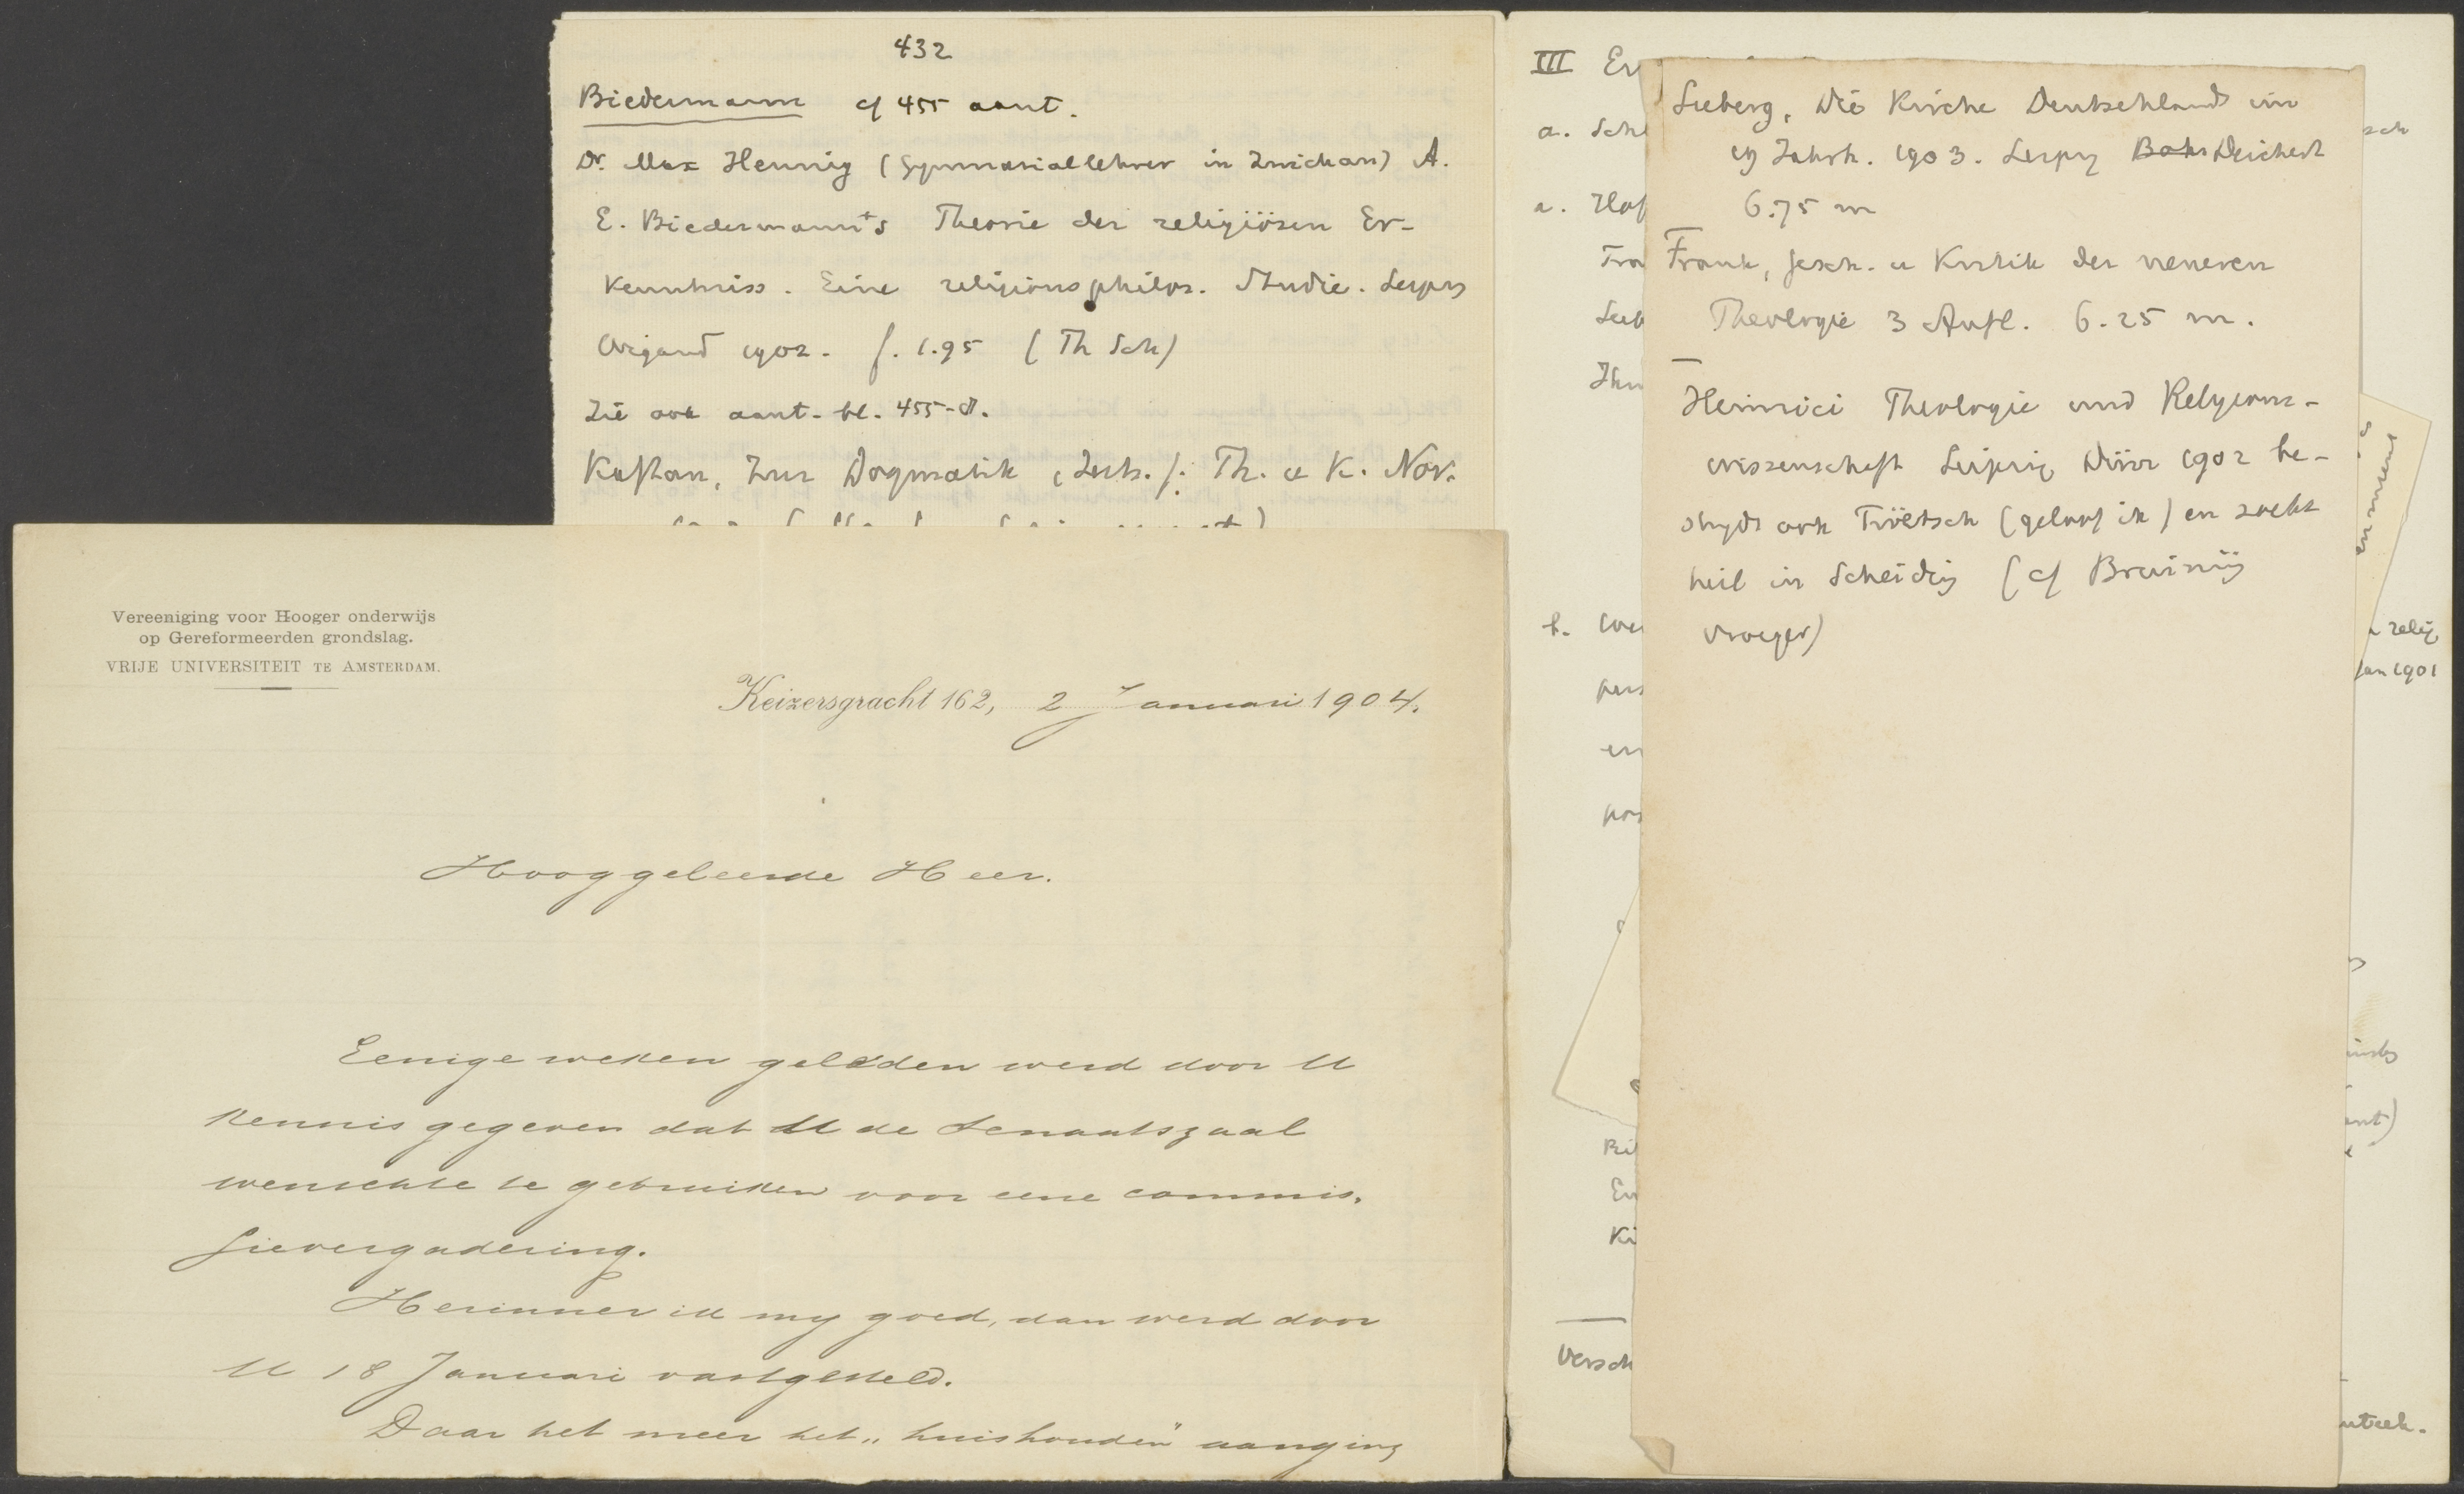 432
Biedermann cf 455 aant.
Dr. Max Hennig (Gymnasiallehrer in Zwickau) A.
E. Biedermann's Theorie der religiösen Er-
kenntniss. Eine religionsphilos. Studie. Leipz
Wigand 1902. f. 1.95 (Th Sch)
Zie ook aant. bl. 455-d.
Kaftan, Zur Dogmatik, Zeits. f. Th. u K. Nov.
Vereeniging voor Hooger onderwijs
op Gereformeerden grondslag.
VRIJE UNIVERSITEIT TE AMSTERDAM.
Keizersgracht 162, 2 Januari 1904.
Hooggeleerde Heer.
Eenige weken geleden werd door U
kennis gegeven dat U de Senaatszaal
wenschte te gebruiken voor eene commis-
sievergadering.
Herinner ik my goed, dan werd door
U 18 Januari vastgesteld.
Daar het meer het „huishouden" aanging
III Er
a. Schl
a. Hof
Fra
Seeb
b.
pers
en
pos
Ri
En
Ki
Versch
Seeberg, Die Kirche Deutschlands im
19 Jahrh. 1903. Leipz Deichert
6.75 m
Frank, Gesch. u Kritik der neueren
Theologie 3 Aufl. 6.25 m.
Heinrici Theologie und Religions-
wissenschaft Leipzig Dürr 1902 be-
strydt ook Tröltsch (geloof ik) en zoekt
heil in Scheidig (cf Bruining
vroeger)
sch
relig
Jan 1901